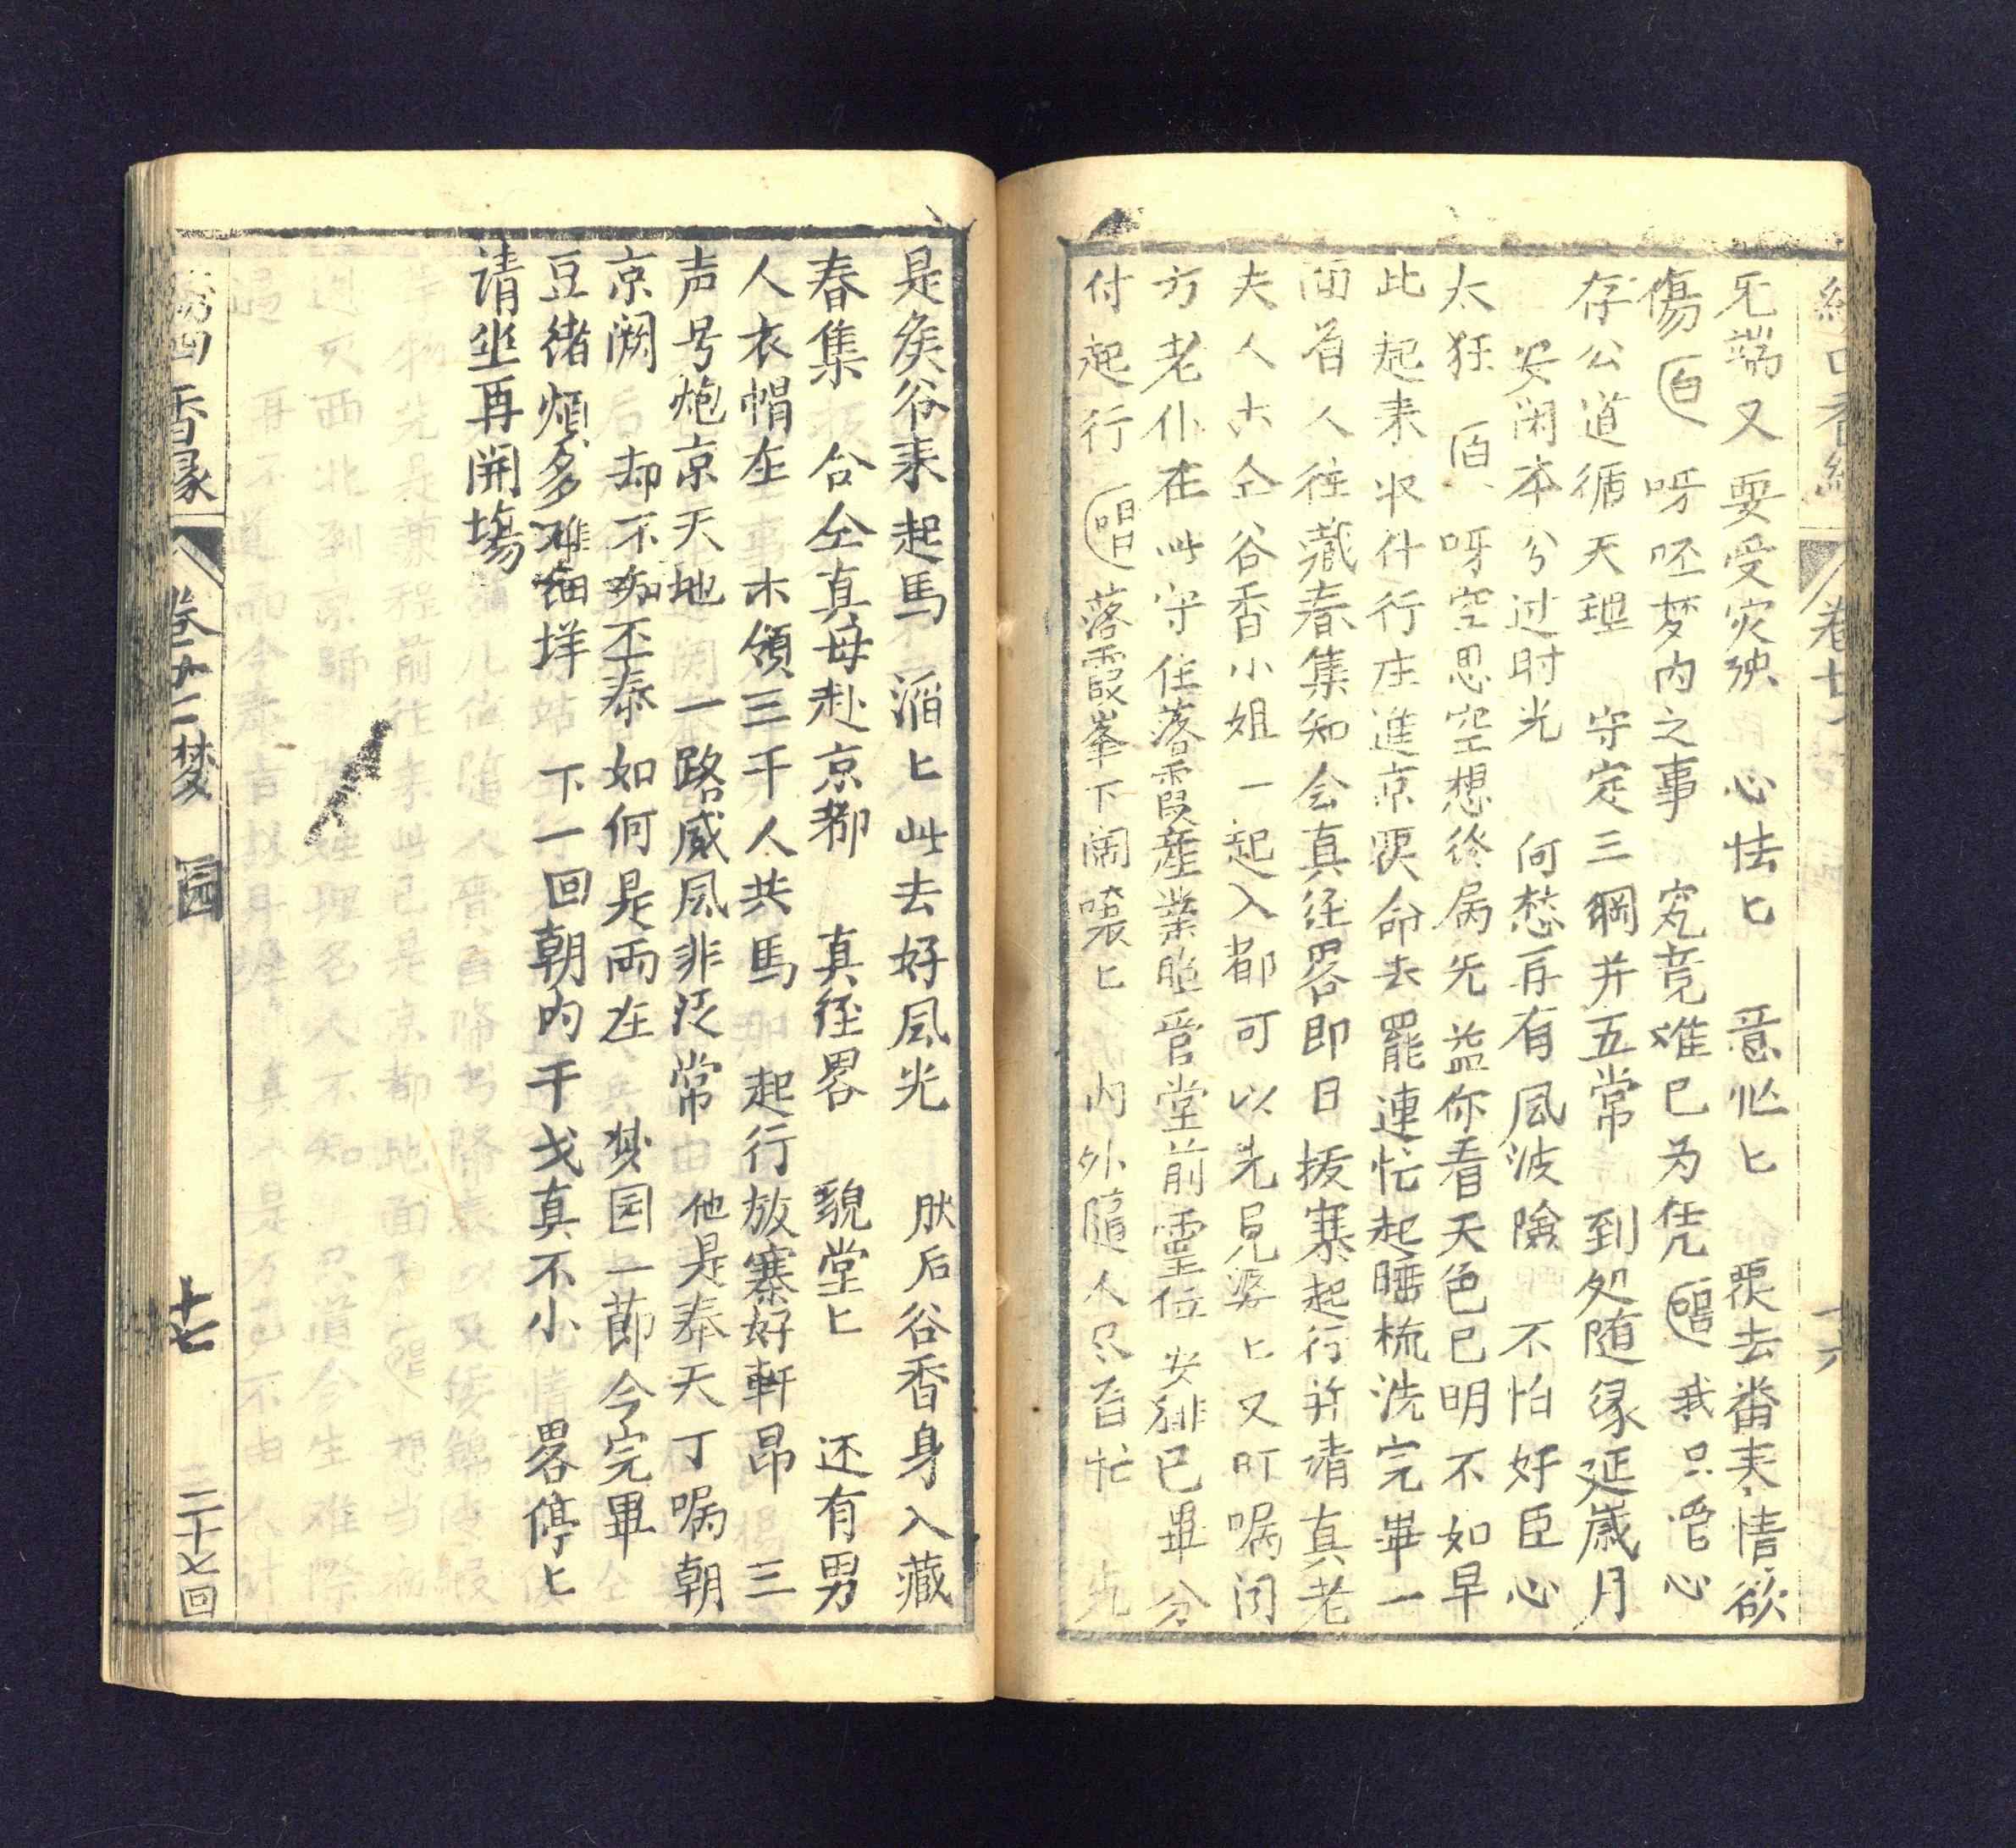 无端又要受灾殃　心怯匕　意忙匕　眼去眷来情欲
傷　白　呀呸梦内之事　究竟难已为凭　唱　我只管心
存公道循天理　守定三綱并五常　到処随缘延歲月
安闲本分过时光　何愁再有风波險　不怕好臣心
太狂　白　呀空思空想終属无益你看天色已明不如早
此起来収什行庄進京覆命去罷連忙起睡梳洗完畢一
面着人往藏春集知会真徑畧即日拔寨起行并请真老
夫人木仝谷香小姐一起入都可以先見婆匕又叮嘱闭
方老仆在此守住落霞產業照管堂前靈位安排已畢分
付起行　唱　落霞峯下闹嚷匕　内外隨人尽着忙　先
卷廿
十六
是矦谷来起馬　滔匕此去好风光　肰后谷香身入藏
春集　合仝真母赴京都　真徑畧　貌堂匕　还有男
人衣帽在　木領三千人共馬　起行放寨好軒昂　三
声号炮京天地　一路威风非泛常　他是奉天丁嘱朝
京阙　却不痴丕泰如何是雨在　梦园一節今完畢
豆绪烦多难细详　下一回朝内干戈真不小　畧停匕
请坐再開場
四香缘
卷廿二梦　园
十七
二十七回